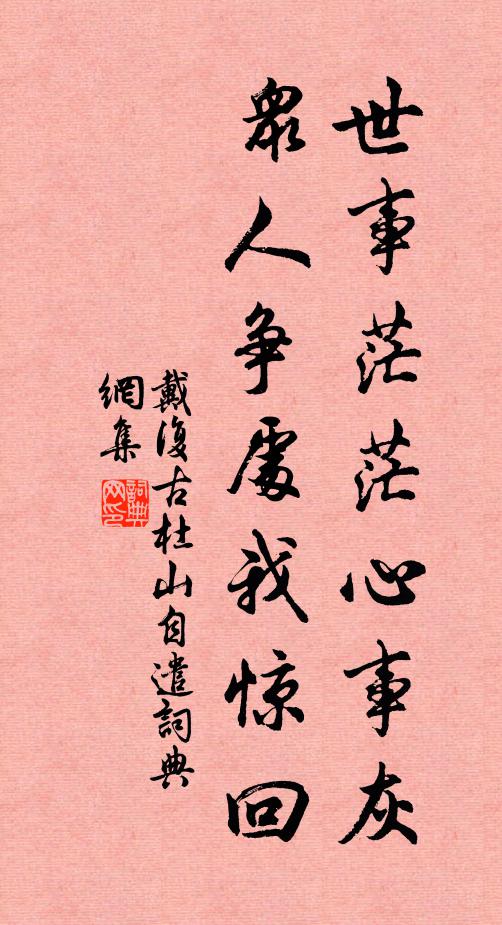 世事茫茫心事灰
眾人争處我惊回
戴復古杜山自遣詞典
網集
詞典网印